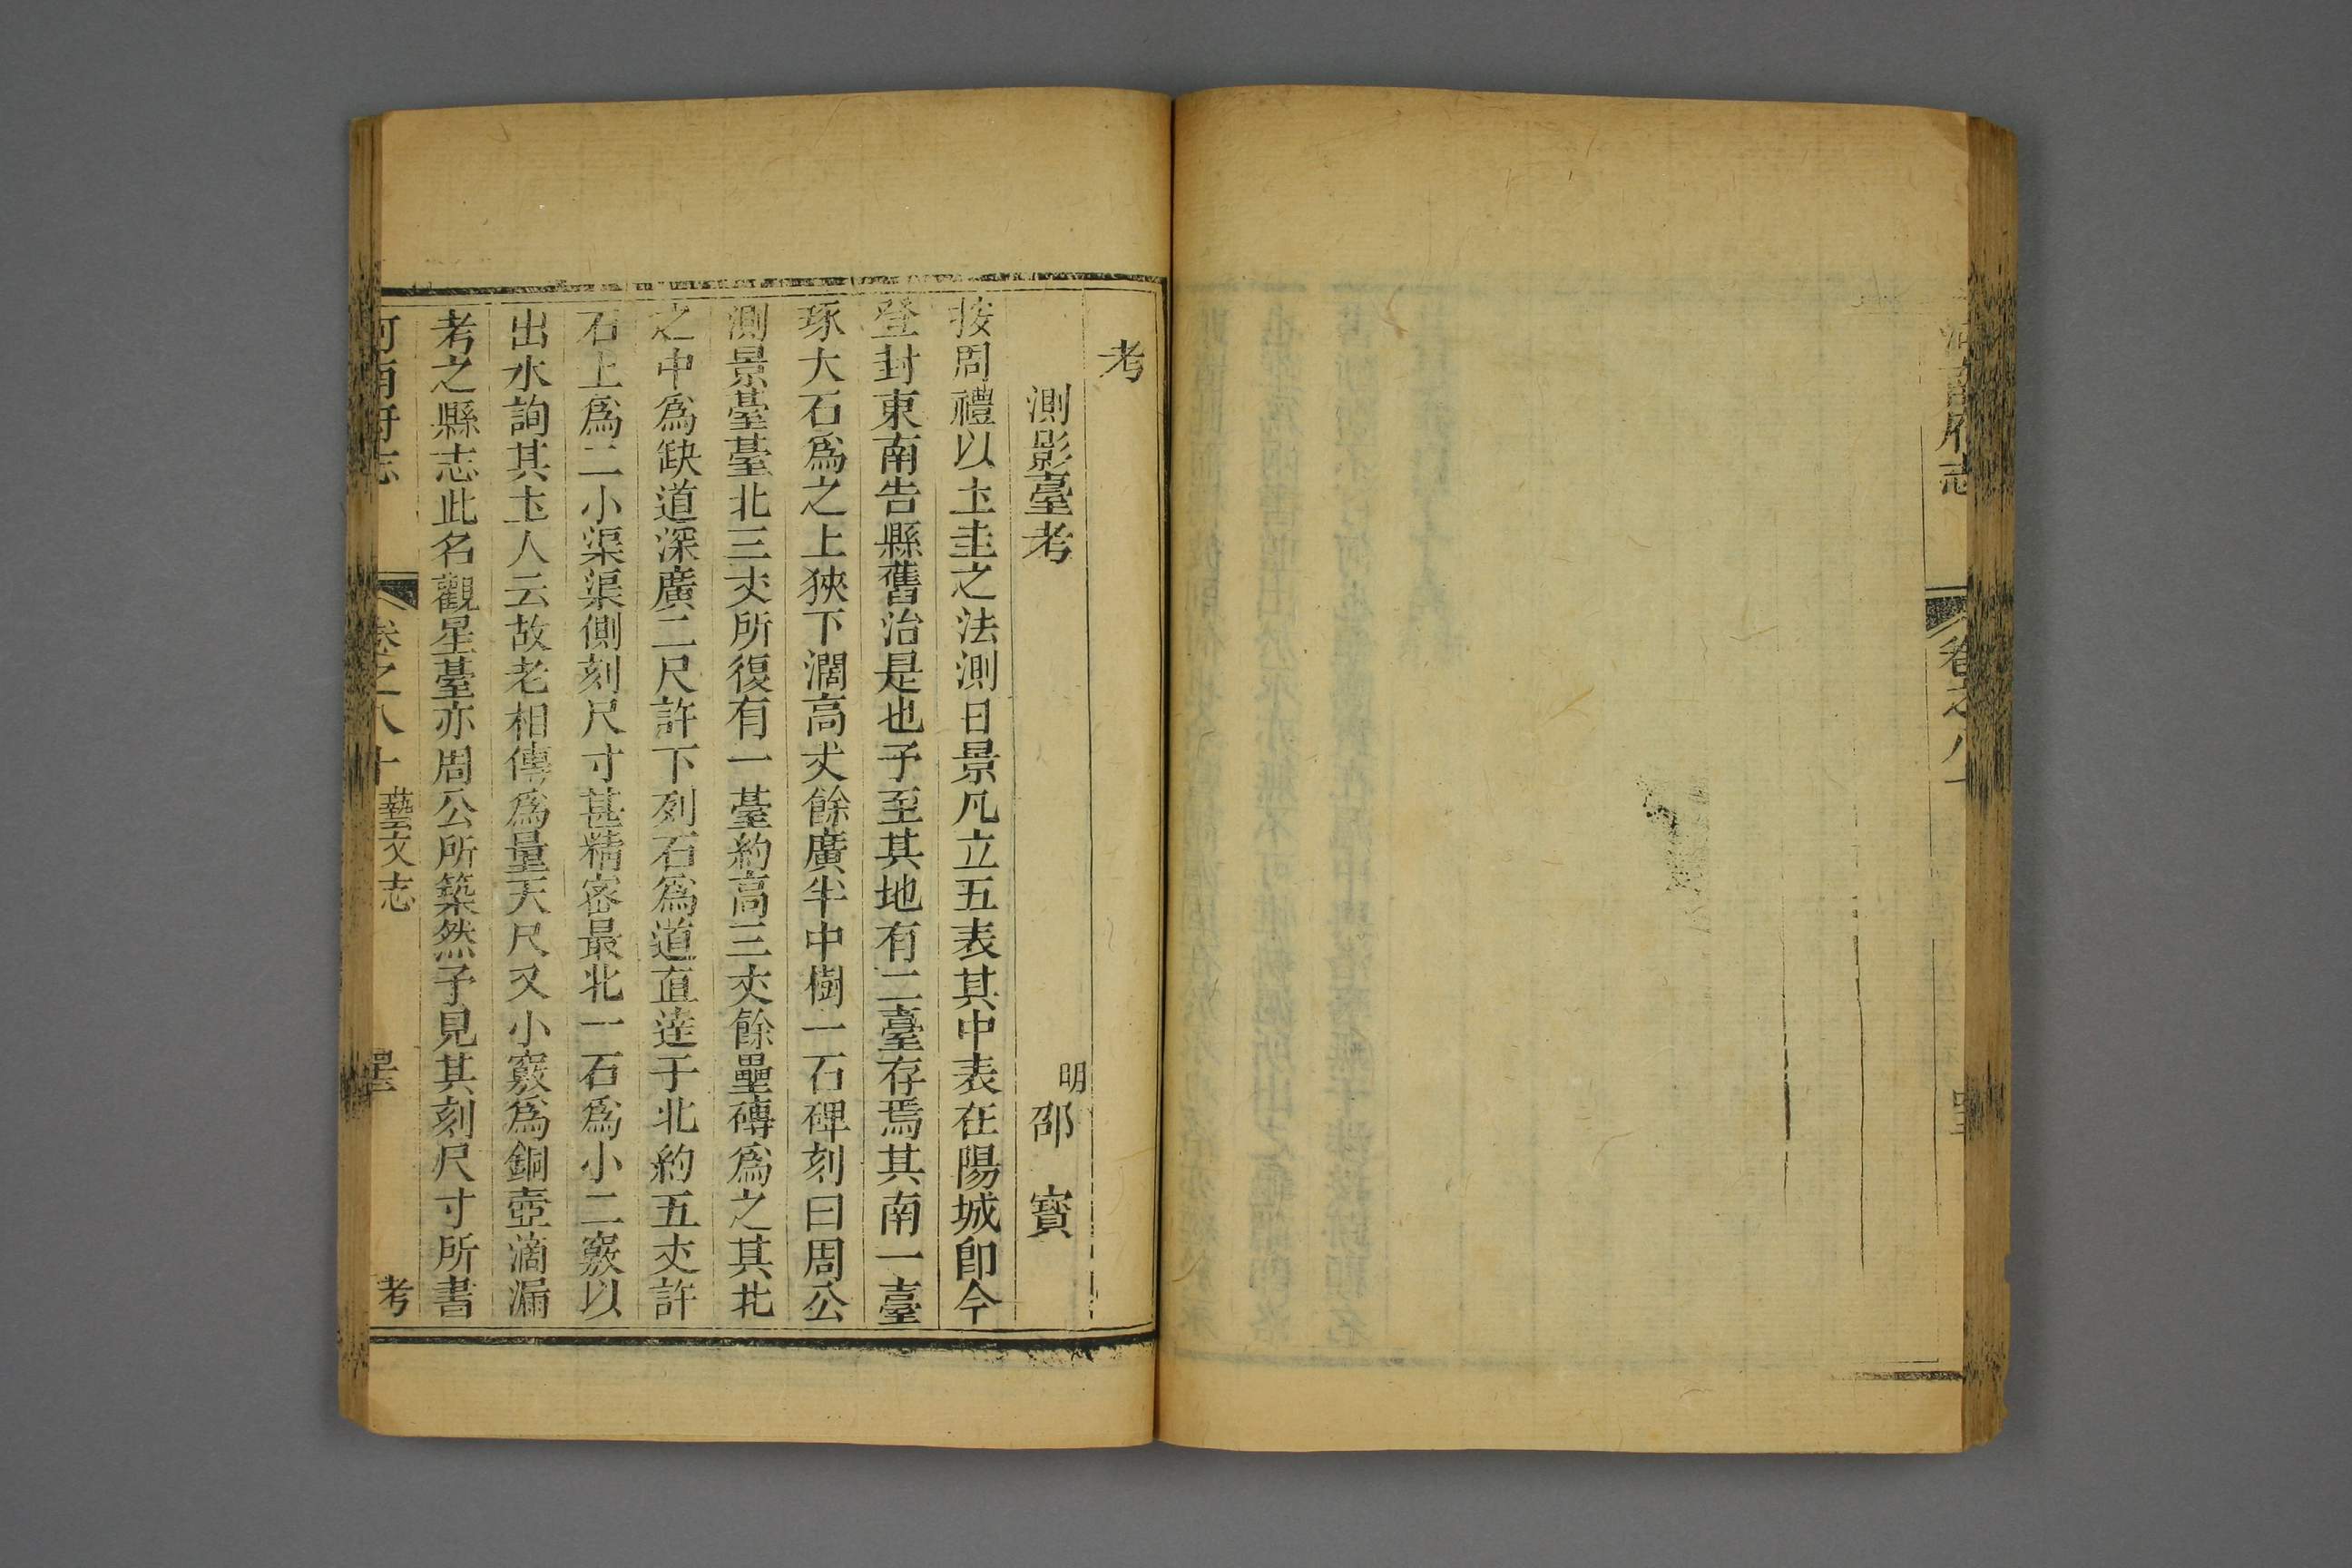 考
測影臺考
明 邵 寳
按周禮以圡圭之法測日景凡立五表其中表在陽城卽今
登封東南告縣舊治是也予至其地有二臺存焉其南一臺
琢大石爲之上狹下濶高丈餘廣半中樹一石碑刻曰周公
測景臺臺北三丈所復有一臺約高三丈餘壘磚爲之其北
之中爲缺道深廣二尺許下列石爲道直達于北約五丈許
石上爲二小渠渠側刻尺寸甚精密最北一石爲小二竅以
出水詢其圡人云故老相傳爲量天尺又小竅爲銅壺滴漏
考之縣志此名觀星臺亦周公所築然予見其刻尺寸所書
河南府志 卷之八十 藝文志 考
河南府志 卷之八十